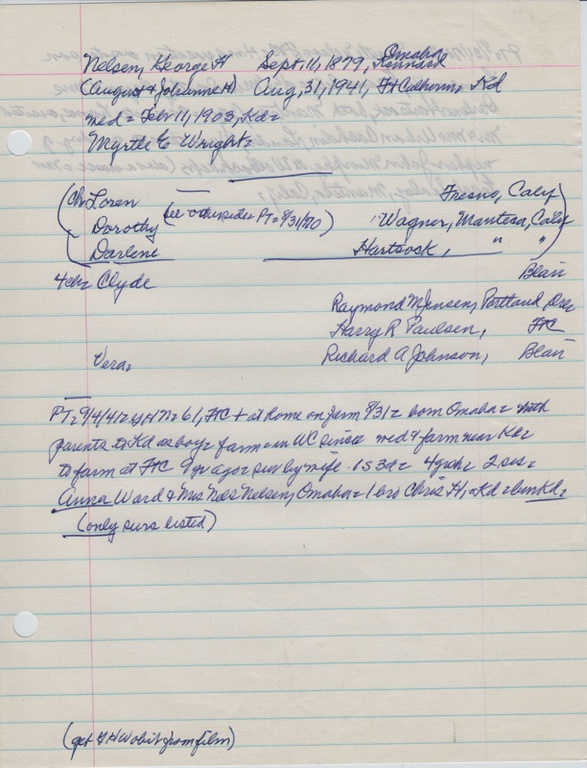 Nelsen, George H Sept. 11, 1879, Omaha Kennard
(August & Johanne H) Aug, 31, 1941, Ft Calhoun, Kd
md = Feb 11, 1903, Kd =
Myrtle E Wright =
(Ch Loren Fresno, Calif)
Dorothy (see otherside PT = 8/31/70) Wagner, Manteca, Calif
Darlene Hartsock, " "
4ch = Clyde Blair
Raymond M Jensen, Portland, Ore
Harry R Paulsen, FtC
Vera, Richard A Johnson, Blair
PT = 9/4/41 = GHN = 61, FtC + at home on farm 8/31 = born Omaha = with
parents to Kd as boy = farm = in WC since md & farm near Kd =
to farm at FtC 9 yr ago = sur by wife 1s 3d = 4gch = 2 sis =
Anna Ward & Mrs Nels Nelsen, Omaha = 1 bro Chris H, = Kd = bur Kd =
(only surs listed)
(get GHN obit from film)